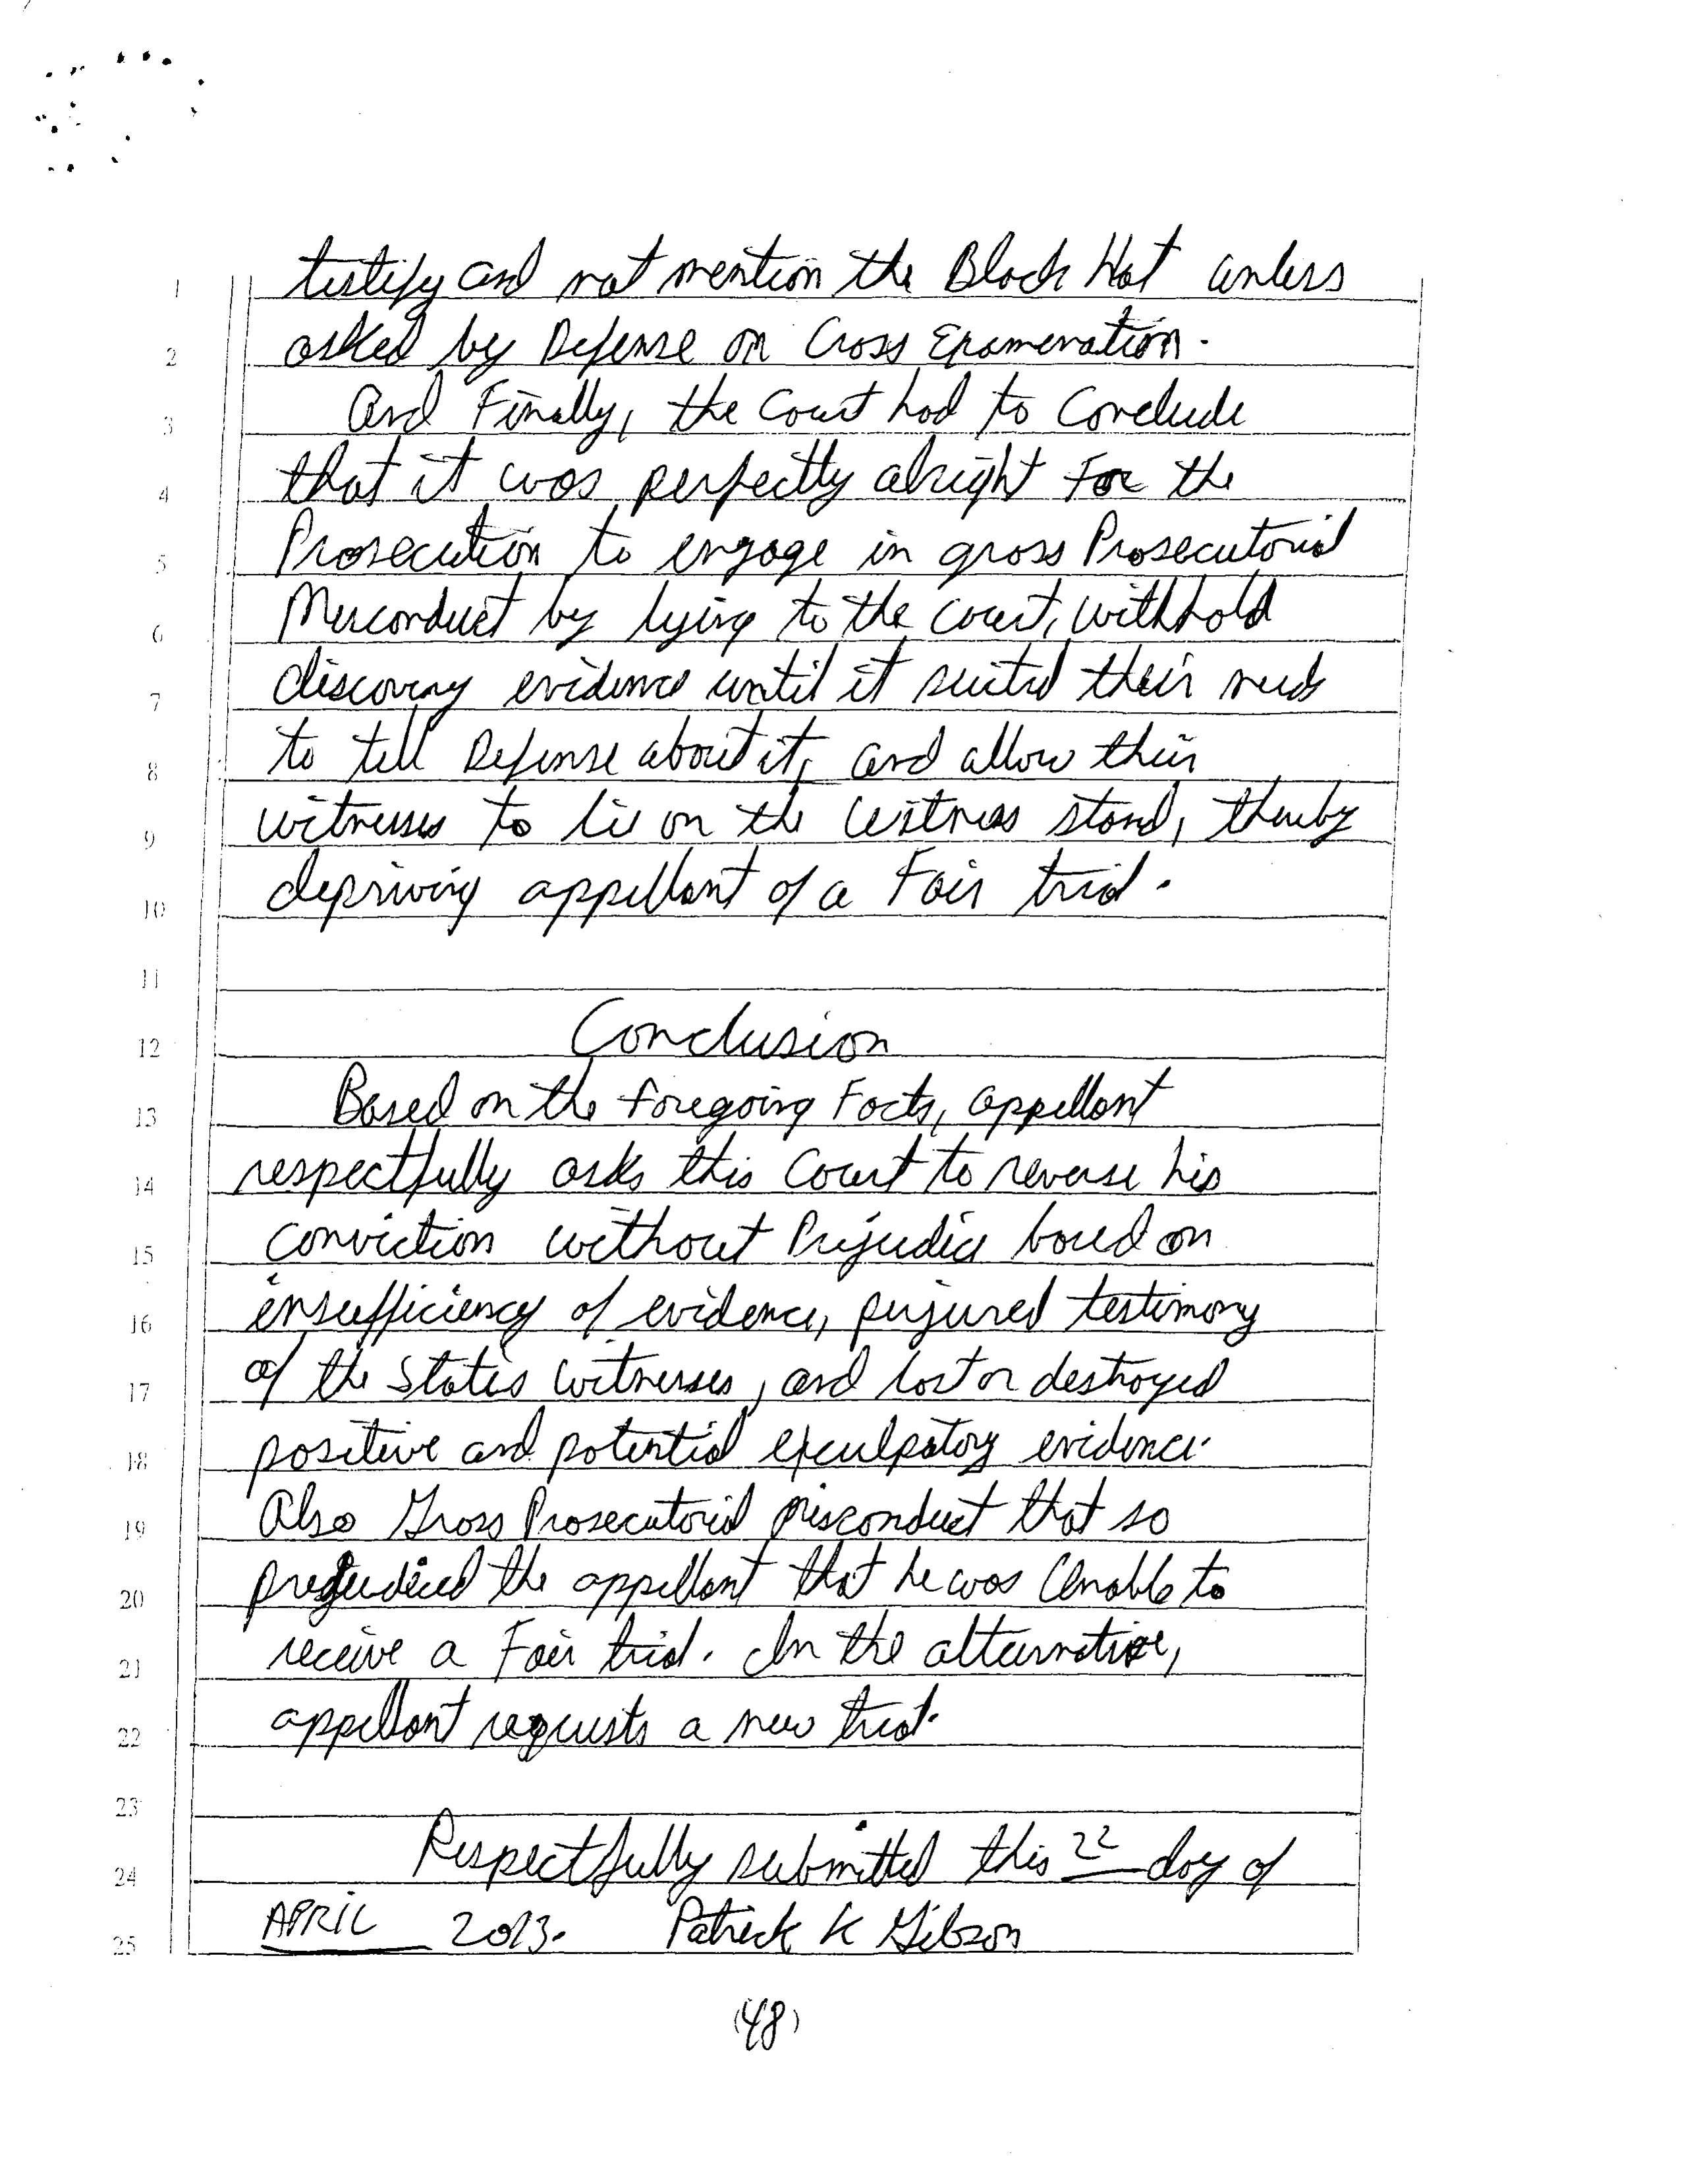 1 testify and not mention the Black Hat unless
2 asked by Defense on Cross Examenation.
3 And Finally, the Court had to Conclude
4 that it was perfectly alright For the
5 Prosecution to engage in gross Prosecutorial
6 Misconduct by lying to the court, withhold
7 discovery evidence until it suited their needs
8 to tell Defense about it, and allow their
9 witnesses to lie on the witness stand, thereby
10 depriving appellant of a Fair trial.
11
12 Conclusion
13 Based on the foregoing Facts, appellant
14 respectfully asks this Court to reverse his
15 conviction without Prejudice based on
16 insufficiency of evidence, perjured testimony
17 of the States witnesses, and lost or destroyed
18 positive and potential exculpatory evidence.
19 Also Gross Prosecutorial misconduct that so
20 prejudiced the appellant that he was Unable to
21 receive a Fair trial. In the alternative,
22 appellant requests a new trial.
23
24 Respectfully submitted this 22 day of
25 APRIL 2013. Patrick K Gibson
(48)